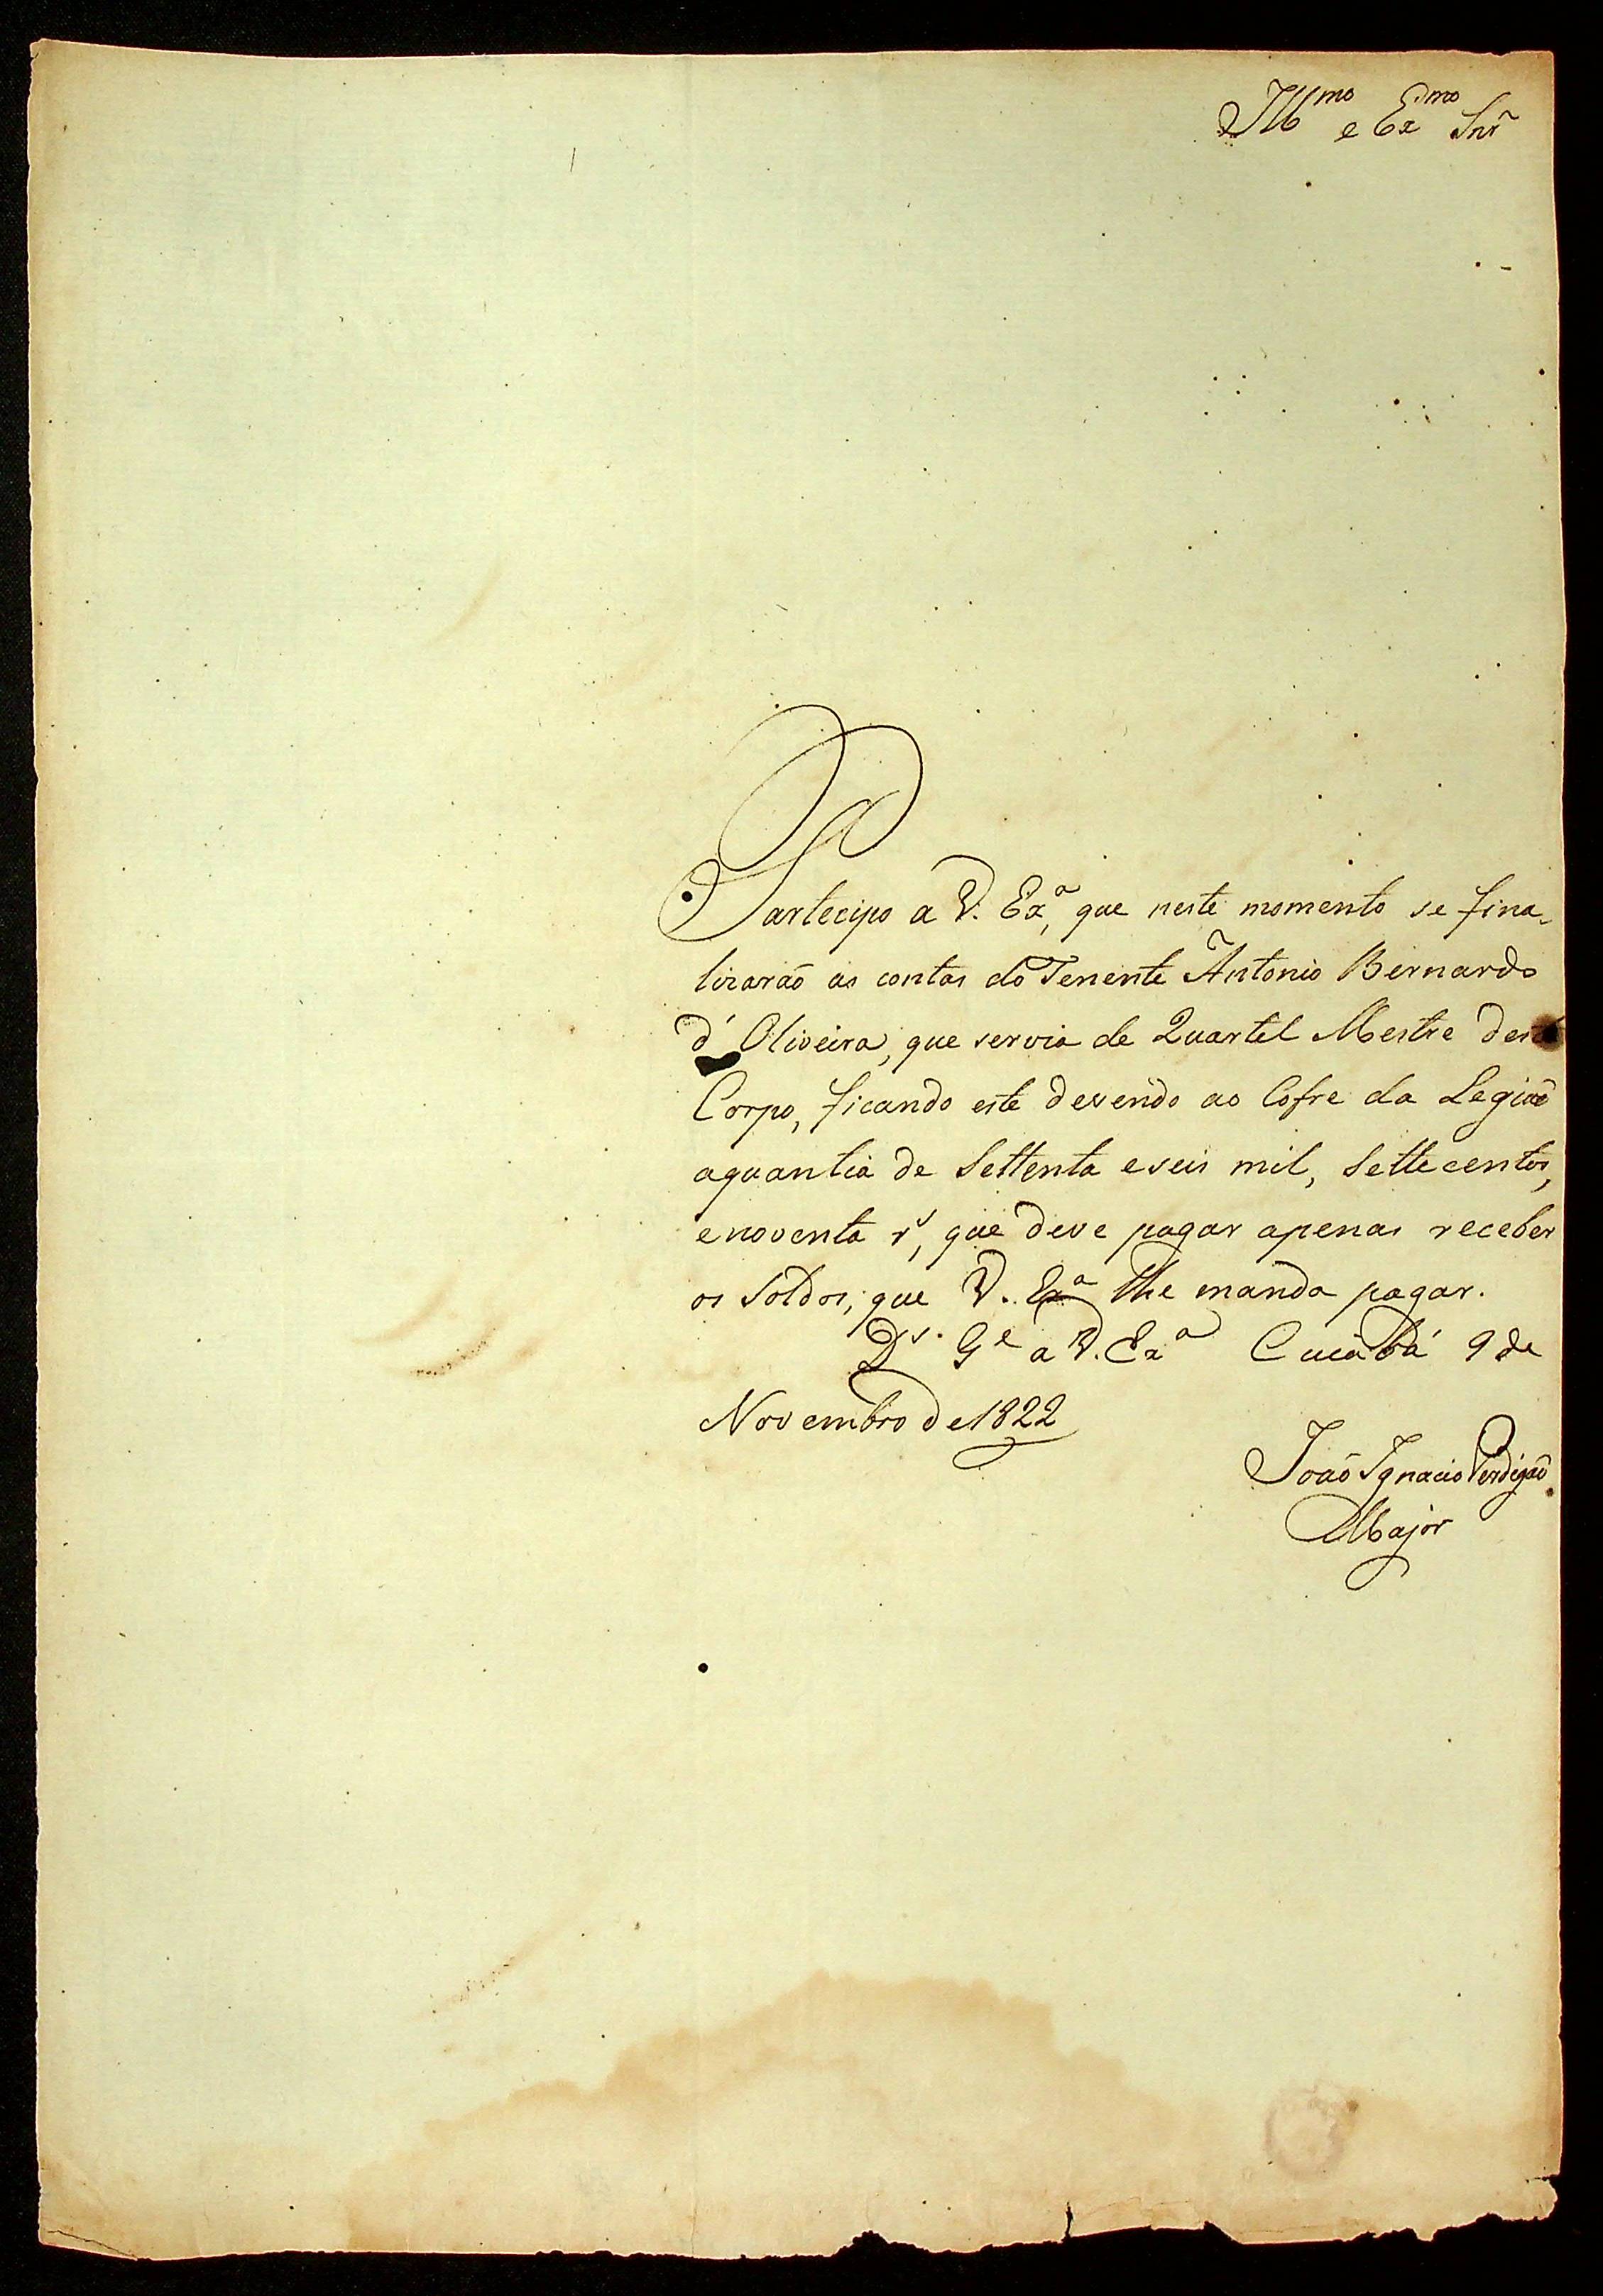 Ill.mo e Ex.mo Snr̃
Partecipo a V. Ex.ª, que neste momento se fina-
lizarão as contas do Tenente Antonio Bernardo
d'Oliveira, que servia de Quartel Mestre deste
Corpo, ficando este devendo ao Cofre da Legião
aquantia de Settenta eseis mil, Settecentos,
enoventa rs, que deve pagar apenas receber
os Soldos, que V. Ex.ª lhe manda pagar.
Ds. Ge a V. Ex.ª Cuiabá 9 de
Novembro de 1822
João Ignacio Perdigão
Major